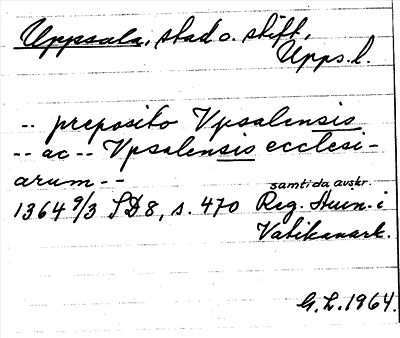 Uppsala, stad o. stift,
Upps. l.
-- preposito Vpsalensis
-- ac -- Vpsalensis ecclesi-
arum --
samtida avskr.
1364 9/3 SD 8, s. 470 Reg. Avin. i
Vatikanark.
G. L. 1964.